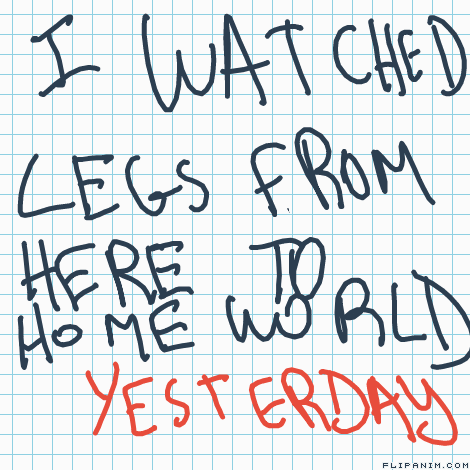 I WATCHED
LEGS FROM
HERE TO
HOME WORLD
YESTERDAY
FLIPANIM.COM